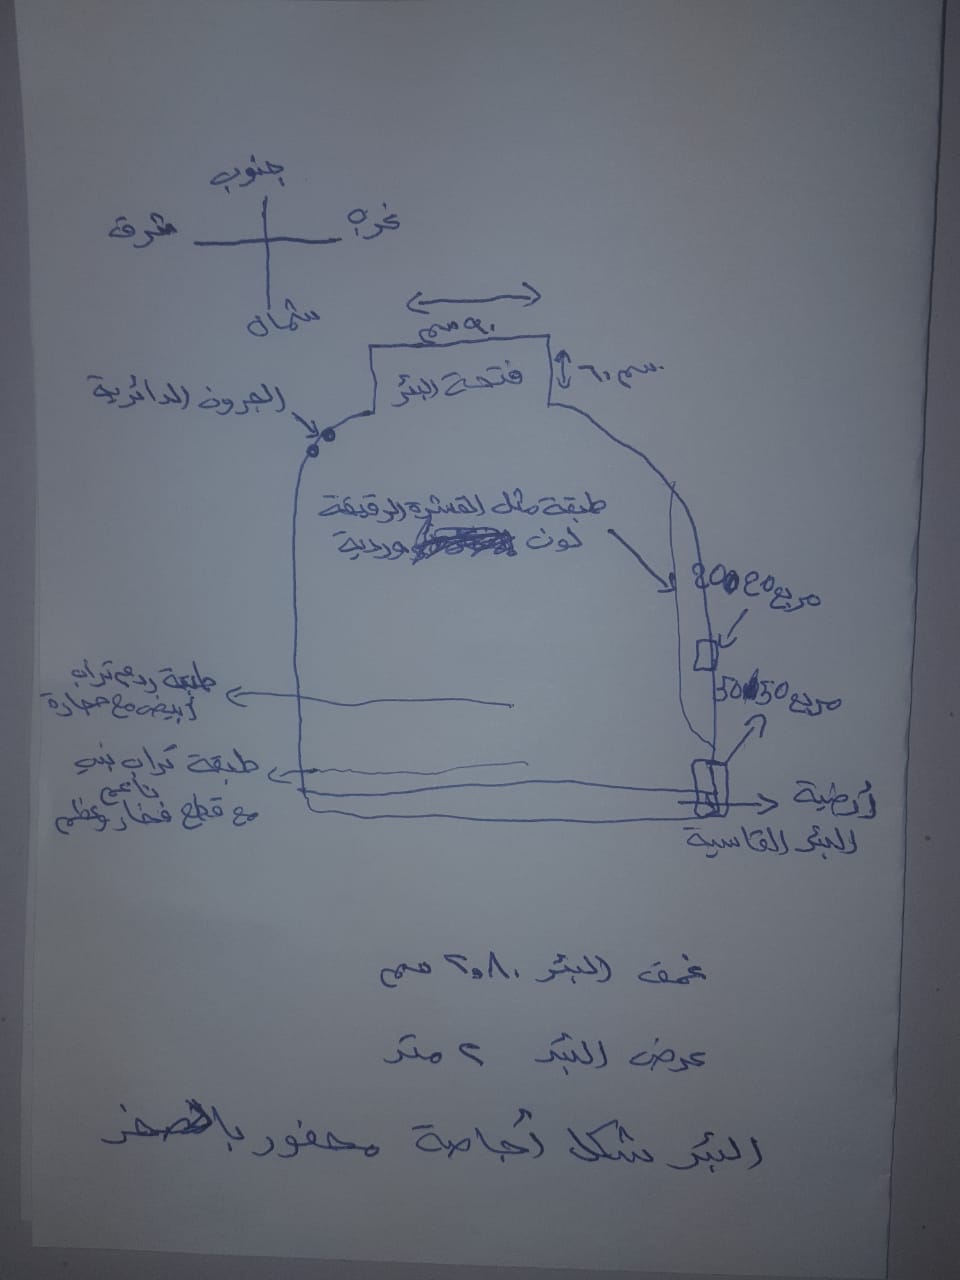 جنوب
غرب
شرق
شمال
٥٠ سم
٦٠ سم
فتحة البئر
الجرون الدائرية
طبقة مثل القشرة الرقيقة
لون وردية
مربع 20 20
مربع 50 50
طبقة ردم تراب
أبيض مع حجارة
طبقة تراب بني
ناعم
مع قطع فخار وعظم
أرضية
البئر القاسية
عمق البئر ٢.٨٠ سم
عرض البئر ٢ متر
البئر شكل أجاصة محفور بالصخر